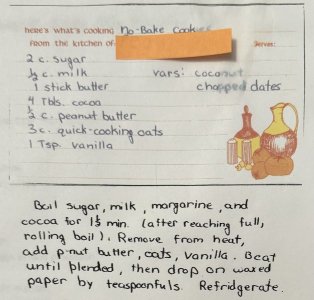 here's what's cooking No-Bake Cookies
from the kitchen of:
Serves:
2 c. sugar
½ c. milk vars: coconut
1 stick butter chopped dates
4 Tbls. cocoa
½ c. peanut butter
3 c. quick-cooking oats
1 Tsp. vanilla
Boil sugar, milk, margarine, and
cocoa for 1½ min. (after reaching full,
rolling boil). Remove from heat,
add p-nut butter, oats, vanilla. Beat
until blended, then drop on waxed
paper by teaspoonfuls. Refridgerate.